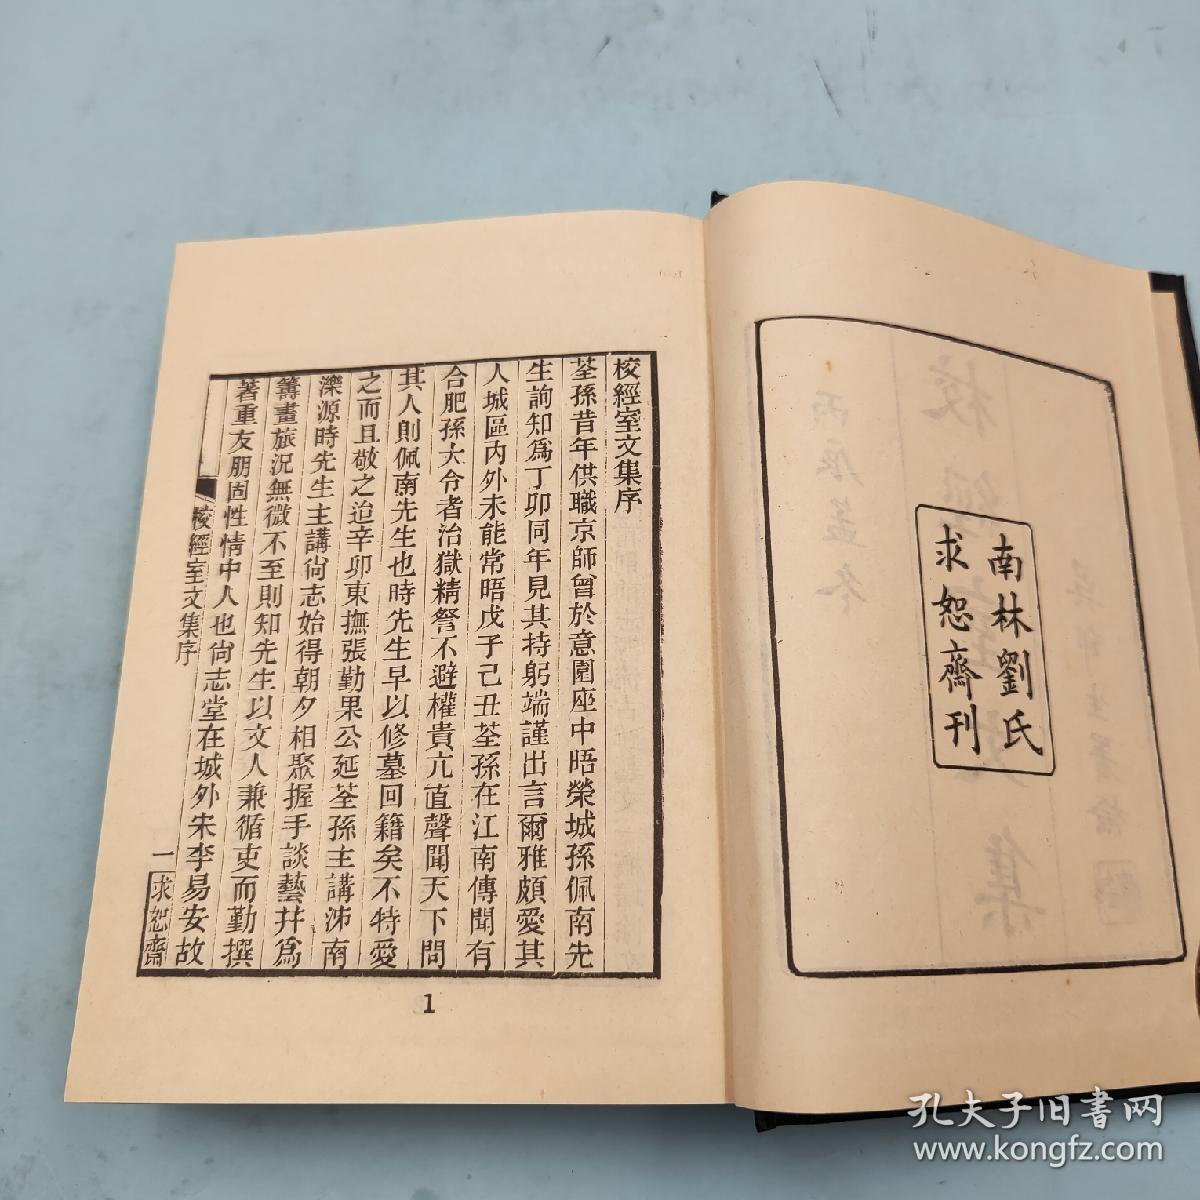 南林劉氏
求恕齋刊
校經室文集序
荃孫昔年供職京師曾於意園座中晤榮城孫佩南先
生詢知爲丁卯同年見其持躬端謹出言爾雅頗愛其
人城區內外未能常晤戊子己丑荃孫在江南傳聞有
合肥孫大令者治獄精詧不避權貴亢直聲聞天下問
其人則佩南先生也時先生早以修墓回籍矣不特愛
之而且敬之迨辛卯東撫張勤果公延荃孫主講沛南
濼源時先生主講尙志始得朝夕相聚握手談藝幷爲
籌畫旅況無微不至則知先生以文人兼循吏而勤撰
著重友朋固性情中人也尙志堂在城外宋李易安故
校經室文集序
一
求恕齋
1
孔夫子旧书网
www.kongfz.com